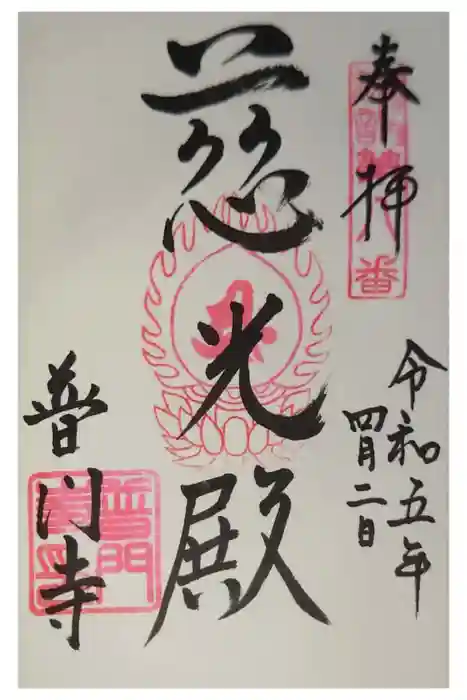 奉拝
令和五年
四月二日
慈光殿
普門寺
番
普門